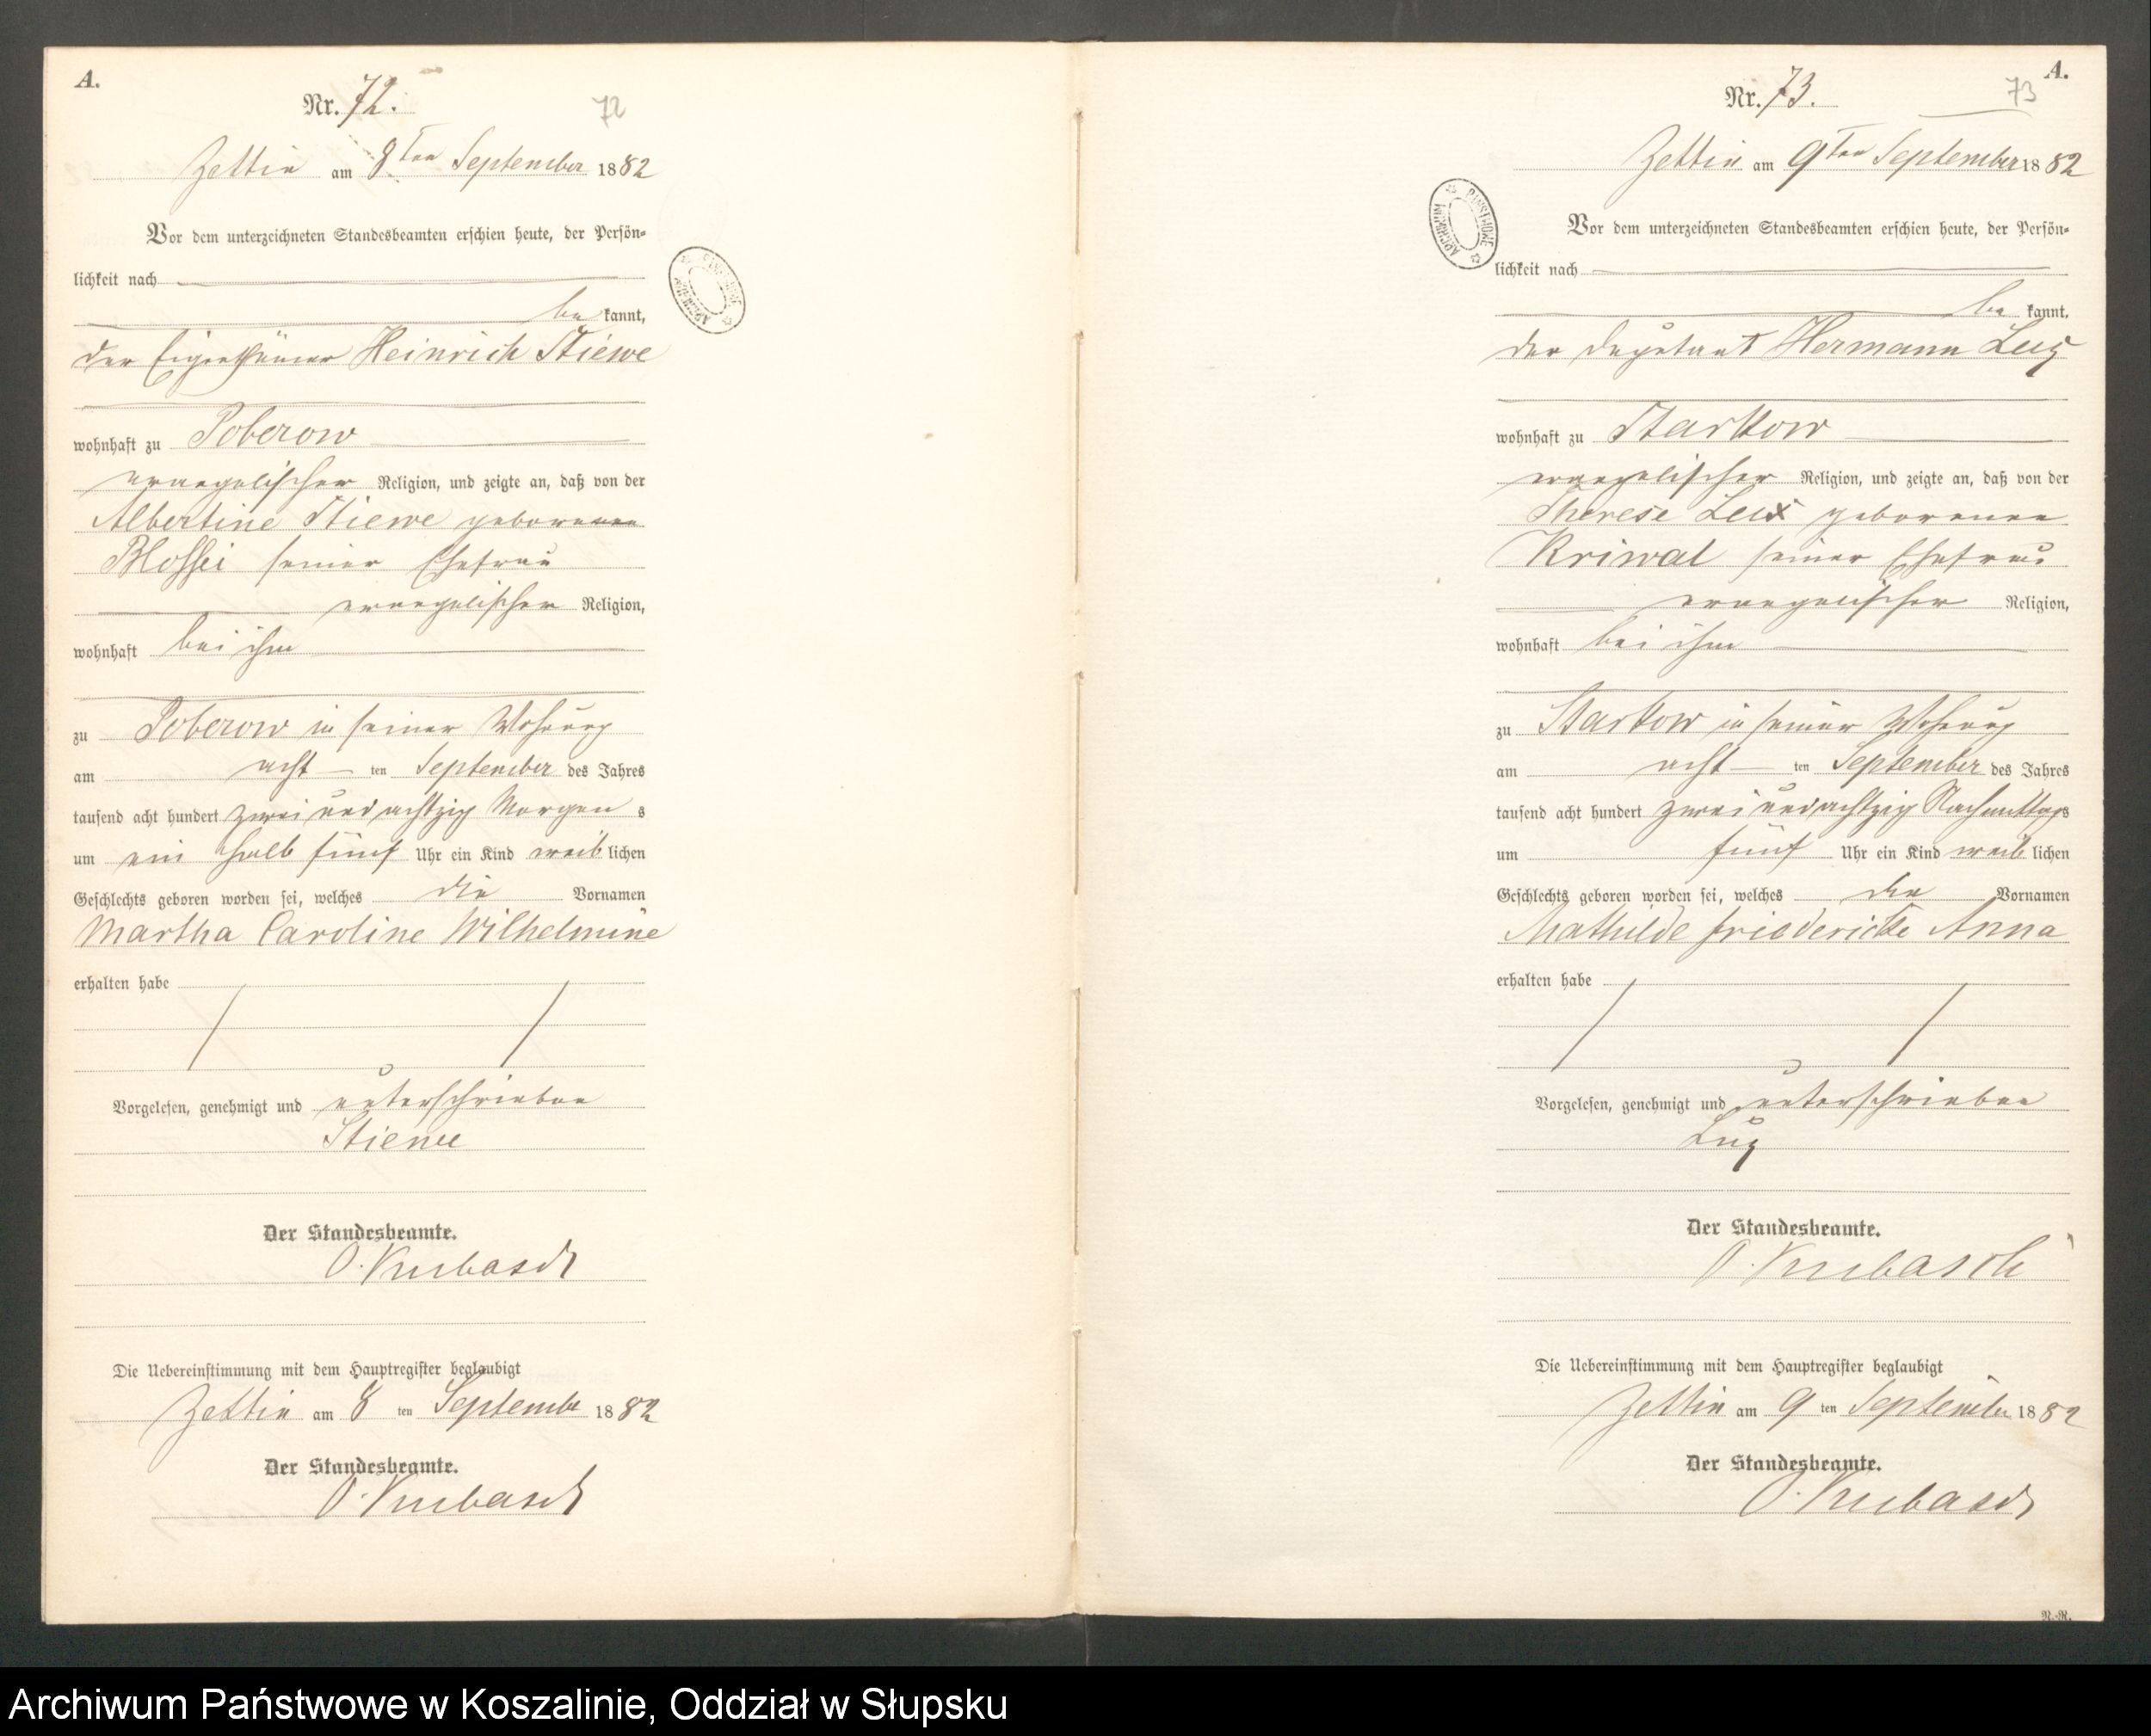 A.
Nr. 72.
72
Zettin am 8ten September 1882
Vor dem unterzeichneten Standesbeamten erschien heute, der Persön-
lichkeit nach
be kannt,
der Eigenthümer Heinrich Stiewe
wohnhaft zu Poberow
evangelischer Religion, und zeigte an, daß von der
Albertine Stiewe geborenen
Blossei seiner Ehefrau
evangelischer Religion,
wohnhaft bei ihm
zu Poberow in seiner Wohnung
am acht ten September des Jahres
tausend acht hundert zwei und achtzig Morgen s
um ein halb fünf Uhr ein Kind weib lichen
Geschlechts geboren worden sei, welches die Vornamen
Martha Caroline Wilhelmine
erhalten habe
Vorgelesen, genehmigt und unterschrieben
Stiewe
Der Standesbeamte.
O. Kubasch
Die Uebereinstimmung mit dem Hauptregister beglaubigt
Zettin am 8 ten September 1882
Der Standesbeamte.
O. Kubasch
A.
Nr. 73.
73
Zettin am 9ten September 1882
ARCHIWUM PAŃSTWOWE
Vor dem unterzeichneten Standesbeamten erschien heute, der Persön-
lichkeit nach
be kannt,
der Deputant Hermann Lux
wohnhaft zu Starkow
evangelischer Religion, und zeigte an, daß von der
Therese Lux geborenen
Kriwal seiner Ehefrau
evangelischer Religion,
wohnhaft bei ihm
zu Starkow in seiner Wohnung
am acht ten September des Jahres
tausend acht hundert zwei und achtzig Nachmittags
um fünf Uhr ein Kind weib lichen
Geschlechts geboren worden sei, welches die Vornamen
Mathilde Friedericke Anna
erhalten habe
Vorgelesen, genehmigt und unterschrieben
Lux
Der Standesbeamte.
O. Kubasch
Die Uebereinstimmung mit dem Hauptregister beglaubigt
Zettin am 9 ten September 1882
Der Standesbeamte.
O. Kubasch
R.-R.
Archiwum Państwowe w Koszalinie, Oddział w Słupsku